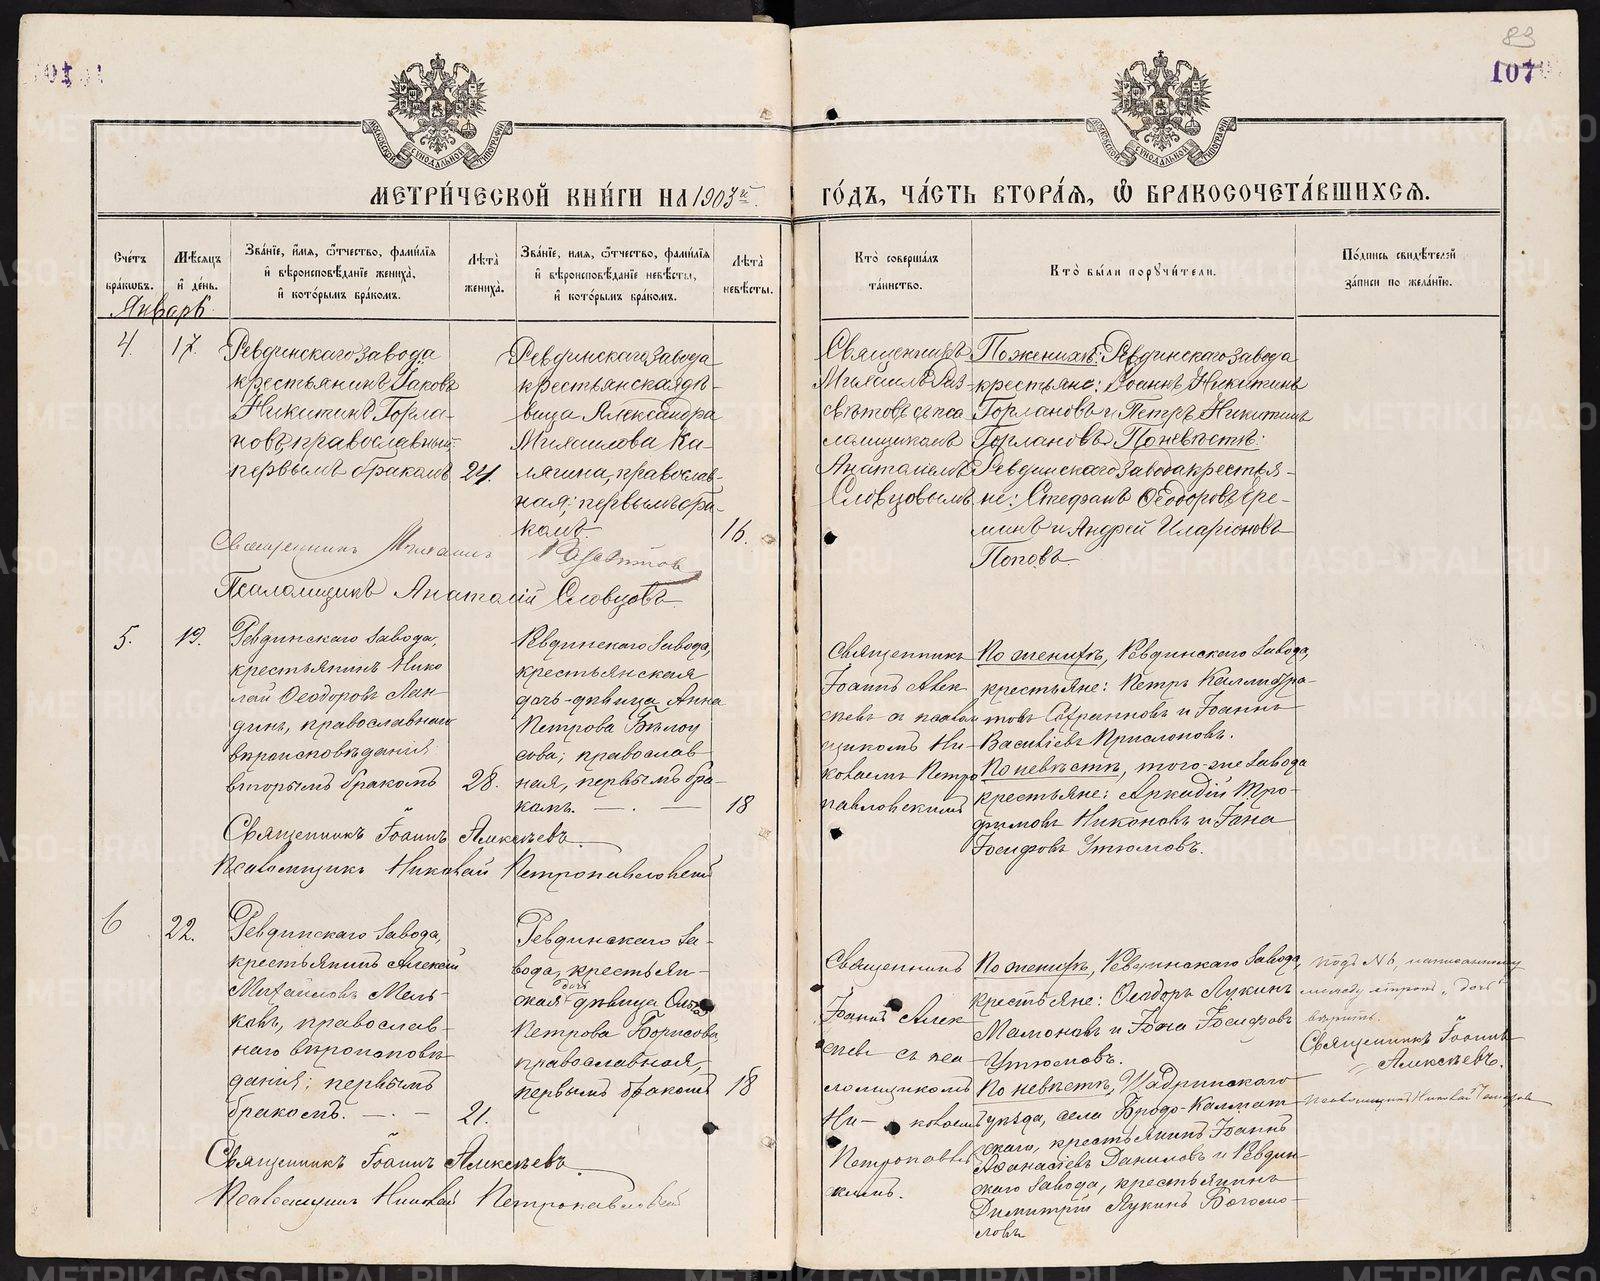 83
107
МОСКОВСКОЙ СѴНОДАЛЬНОЙ ТИПОГРАФІИ
МОСКОВСКОЙ СѴНОДАЛЬНОЙ ТИПОГРАФІИ
МЕТРИ́ЧЕСКОЙ КНИ́ГИ НА 1903й ГО́ДЪ, ЧА́СТЬ ВТОРА́Ѧ, Ѽ БРАКОСОЧЕТА́ВШИХСѦ.
Сче́тъ бра́кѡвъ.
Мѣ́сѧцъ и҆ де́нь.
Зва́нїе, и҆́мѧ, ѻ҆́тчество, фами́лїѧ и҆ вѣроисповѣ́данїе жениха̀, и҆ кото́рымъ бра́комъ.
Лѣ́та жениха̀.
Зва́нїе, и҆́мѧ, ѻ҆́тчество, фами́лїѧ и҆ вѣроисповѣ́данїе невѣ́сты, и҆ кото́рымъ бра́комъ.
Лѣ́та невѣ́сты.
Кто̀ соверша́лъ та́инство.
Кто̀ бы́ли порꙋчи́тели.
По́дпись свидѣ́телей за́писи по жела́нїю.
Январь
4.
17.
Ревдинскаго завода
крестьянинъ Іаковъ
Никитинъ Горла-
новъ, православный,
первымъ бракомъ
24.
Ревдинскаго завода
крестьянская дѣ-
вица Александра
Михаилова Ка-
лягина, православ-
ная; первымъ бра-
комъ.
16.
Священникъ
Михаилъ Раз-
свѣтовъ съ пса
ломщикомъ
Анатоліемъ
Словцовымъ
По женихѣ: Ревдинскаго завода
крестьяне: Іоаннъ Никитинъ
Горлановъ и Петръ Никитинъ
Горлановъ. По невѣстѣ:
Ревдинскаго завода крестья-
не: Стефанъ Ѳеодоровъ Ере-
минъ и Андрей Иларіоновъ
Поповъ
Священникъ Михаилъ Разсвѣтовъ
Псаломщикъ Анатолій Словцовъ
5.
19.
Ревдинскаго завода,
крестьянинъ Нико
лай Ѳеодоровъ Лан-
динъ, православнаго
вѣроисповѣданія
вторымъ бракомъ
28.
Ревдинскаго завода,
крестьянская
дочь-дѣвица Анна
Петрова Бѣлоу
сова; православ
ная, первымъ бра-
комъ.
18
Священникъ
Іоаннъ Алек
сѣевъ съ псалом
щикомъ Ни-
колаемъ Петро
павловскимъ
По женихѣ, Ревдинскаго завода,
крестьяне: Петръ Каллистра-
товъ и Іоаннъ
Василіевъ Прислоновъ.
По невѣстѣ, того-же завода
крестьяне: Аркадій Тро-
фимовъ Никоновъ и Іона
Іосифовъ Утюмовъ.
Священникъ Іоаннъ Алексѣевъ.
Псаломщикъ Николай Петропавловскій
6
22.
Ревдинскаго завода,
крестьянинъ Алексѣй
Михайловъ Мель-
ковъ, православ-
наго вѣроисповѣ-
данія; первымъ
бракомъ.
21.
Ревдинскаго за-
вода, крестьян-
дочь
ская дѣвица Ольга
Петрова Борисова
православная,
первымъ бракомъ
18
Священникъ
Іоаннъ Алек-
сѣевъ съ пса-
ломщикомъ
Ни- колаемъ
Петропавлов
скимъ.
По женихѣ, Ревдинскаго завода,
крестьяне: Ѳеодоръ Лукинъ
Мамоновъ и Іона Іосифовъ
Утюмовъ.
По невѣстѣ, Шадринскаго
уѣзда, села Бродо-Калмат-
скаго, крестьянинъ Іоаннъ
Аѳанасіевъ Даниловъ и Ревдин-
скаго завода, крестьянинъ
Димитрій Лукинъ Богомо-
ловъ
подъ № 6, написанному
между строкъ „дочь“
вѣрить.
Священникъ Іоаннъ
Алексѣевъ.
Псаломщикъ Николай
Священникъ Іоаннъ Алексѣевъ.
Псаломщикъ Николай Петропавловскій
METRIKI.GASO-URAL.RU